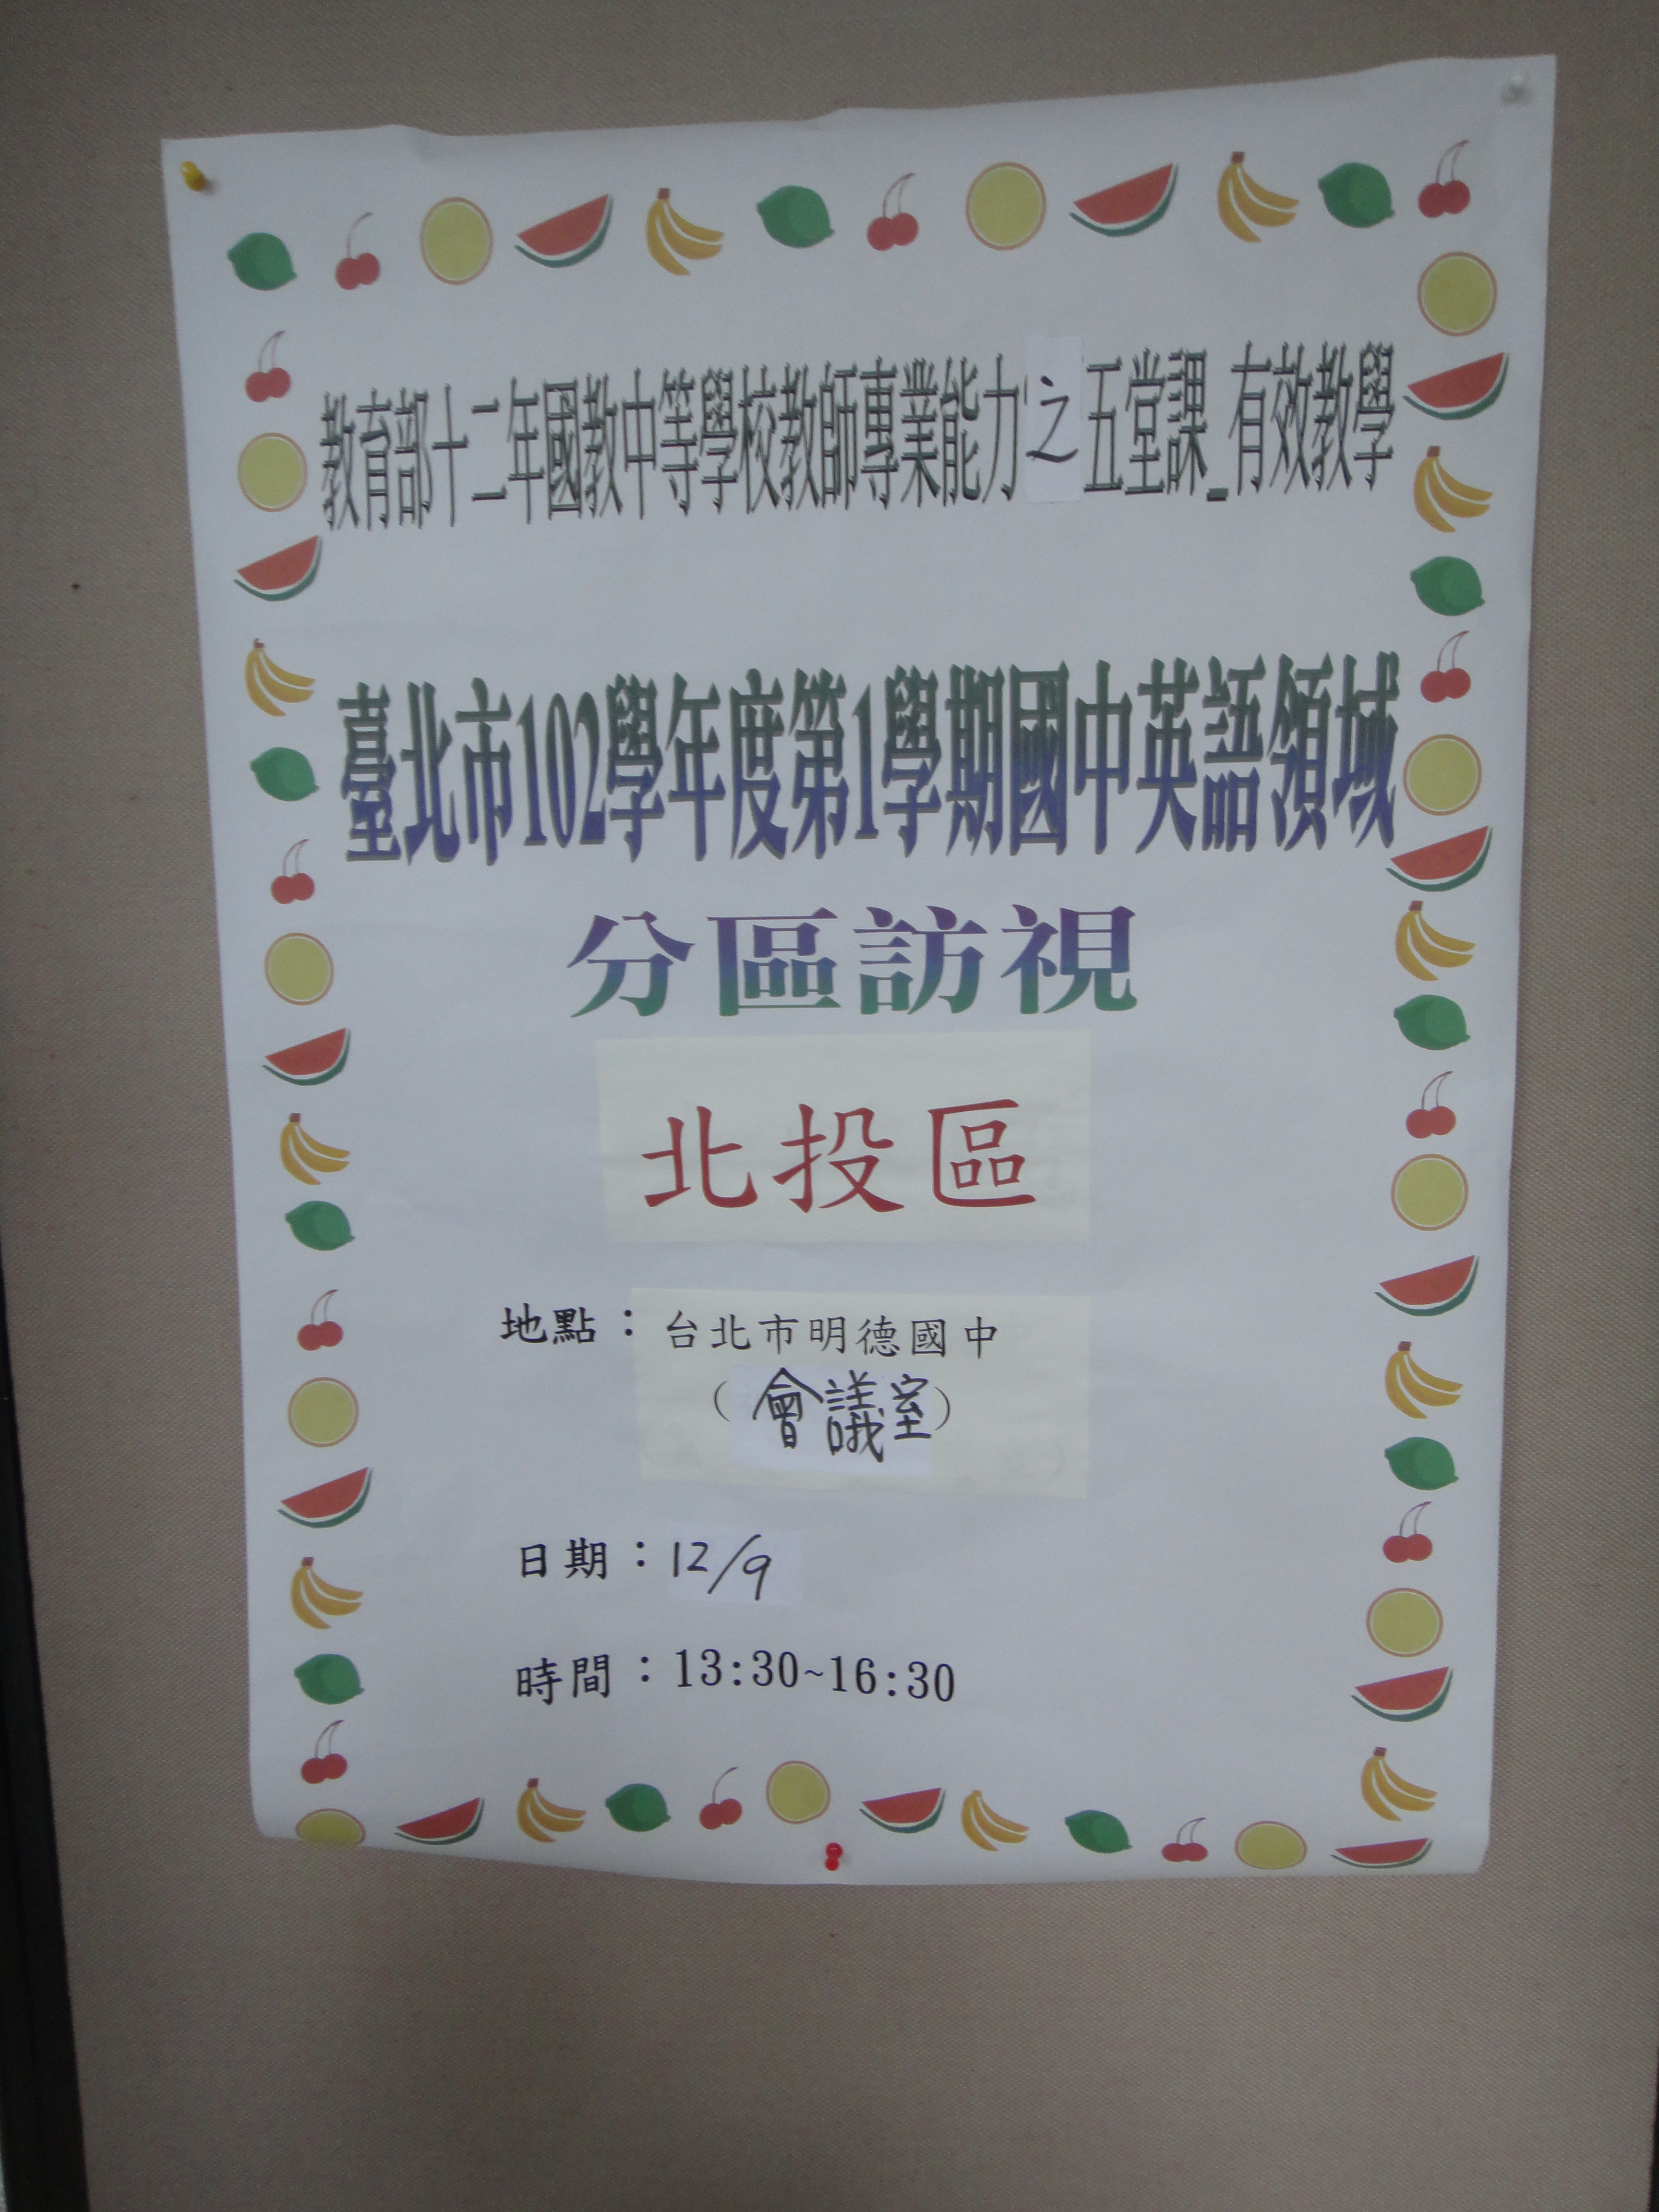 教育部十二年國教中等學校教師專業能力之五堂課_有效教學
臺北市102學年度第1學期國中英語領域
分區訪視
北投區
地點：台北市明德國中
（會議室）
日期：12/9
時間：13:30~16:30